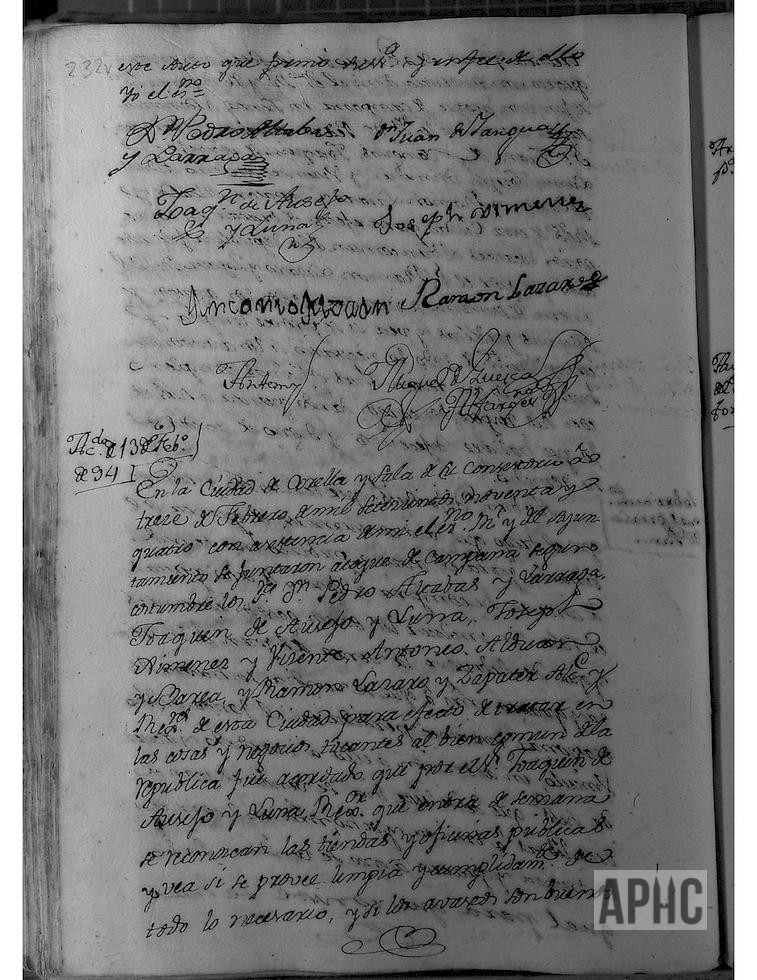 232v
este Auto que firmó y en fee de ello
Yo el esno
Dn Pedro Alcabas Dn Juan de Tangua
y Larraga
Joaqn de Ausejo Joseph Ximenez
y Luna
Antonio Alduan Ramon Lazaro
Antemy Miguel de Huesca
Acdo de 13 de Febo
de 94
En la Ciudad de Corella y Sala de su Consistorio a
trece de Febrero de mil setecientos noventa y
quatro con asistencia de mi el esno Rl y del Ayun
tamiento se juntaron a toque de Campana segun
costumbre los Srs Dn Pedro Alcabas y Larraga,
Joaquin de Ausejo y Luna, Joseph
Ximenez y Vicente, Antonio Alduan
y Barea, y Ramon Lazaro y Zapater Alc. y
Regres de esta Ciudad para efecto de tratar en
las cosas y negocios tocantes al bien comun de la
republica fue acordado que por el Sr Joaquin de
Ausejo y Luna Regor que entra de semana
se reconozcan las tiendas y oficinas publicas
y vea si se provee limpia y cumplidamte de
todo lo necesario, y si los avastos son buenos
APHC